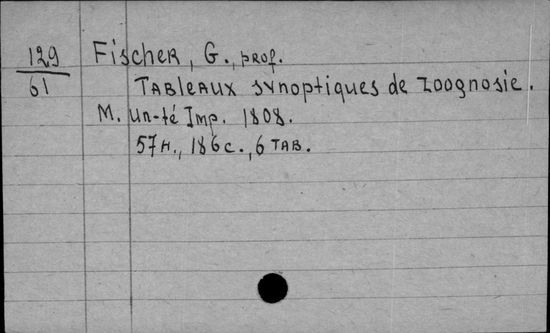 129
61
Fischer, G., prof.
Tableaux synoptiques de Zoognosie.
M. Un-té Imp. 1808.
57н., 186 c., 6 таб.